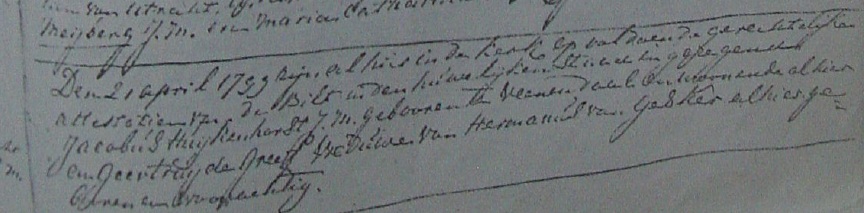 van Utrecht,
Meijberg J.M. van Maria Catharina
Den 21 april 1793 zijn alhier in de kerk op voldoende gerechtelijke
attestatie van de Bilt in den huwelijken staat ingezegend
Jacobus Huijkenhorst J.M. gebooren te Veenendaal en woonende alhier
en Geertruij de Greeff Weduwe van Hermanus van Gesker alhier ge=
booren en woonachtig.